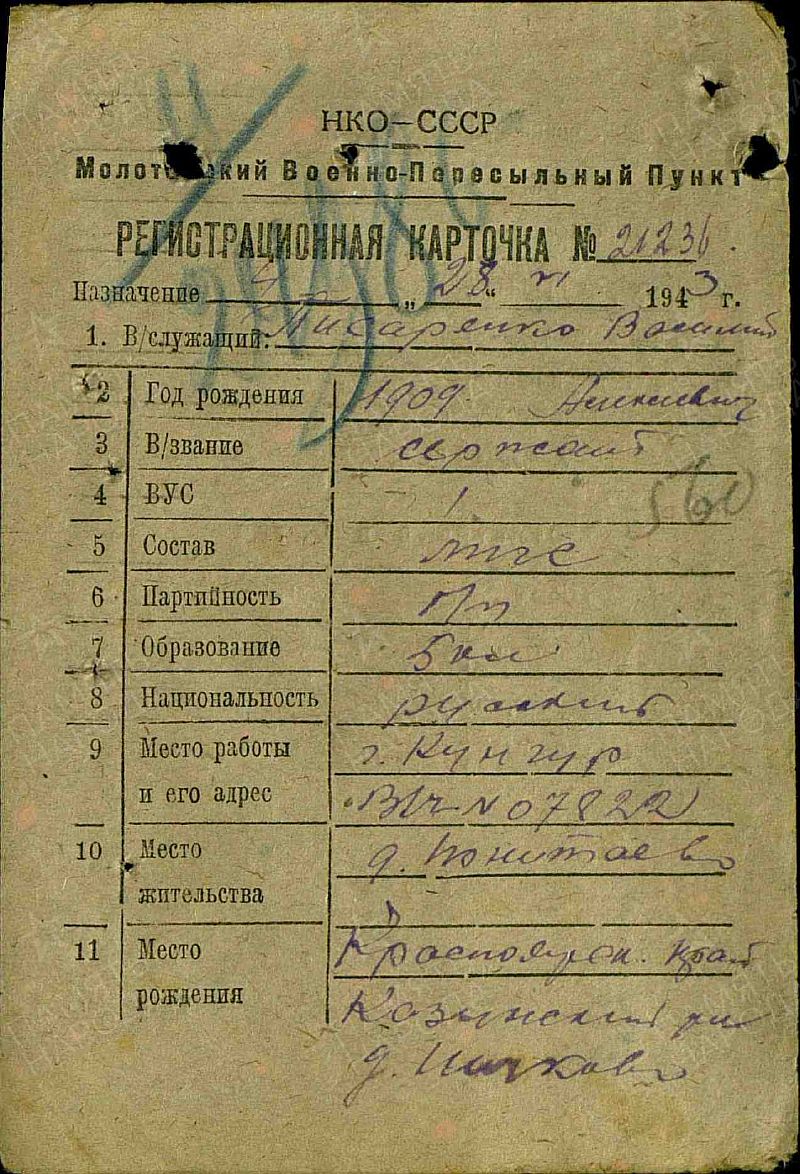 НКО–СССР
Молотовский Военно-Пересыльный Пункт
РЕГИСТРАЦИОННАЯ КАРТОЧКА № 21236.
Назначение „28“ VI 1943 г.
1. В/служащий: Писаренко Василий
2 Год рождения 1909. Алексеевич
3 В/звание сержант
4 ВУС 1
560
5 Состав мнс
6 Партийность б/п
7 Образование 5 кл
8 Национальность русский
9 Место работы г. Кунгур
и его адрес В/ч № 07822
10 Место д.
жительства
11 Место Красноярск. край
рождения
д.